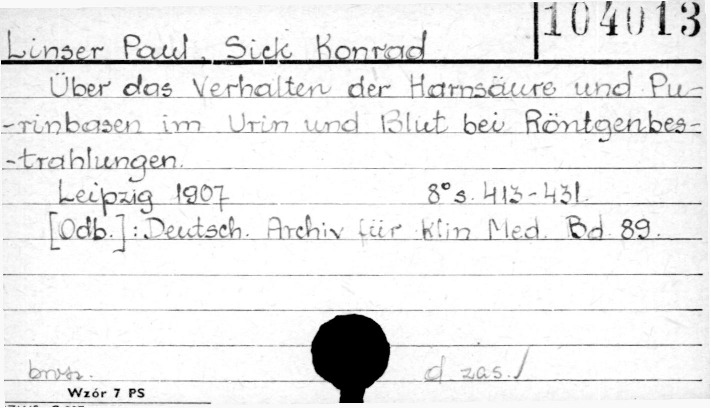 104013
Linser Paul, Sick Konrad
Über das Verhalten der Harnsäure und Pu-
-rinbasen im Urin und Blut bei Röntgenbes-
-trahlungen.
Leipzig 1907 8° s. 413-431.
[Odb.]: Deutsch. Archiv für klin Med. Bd. 89.
brosz. d zas./
Wzór 7 PS